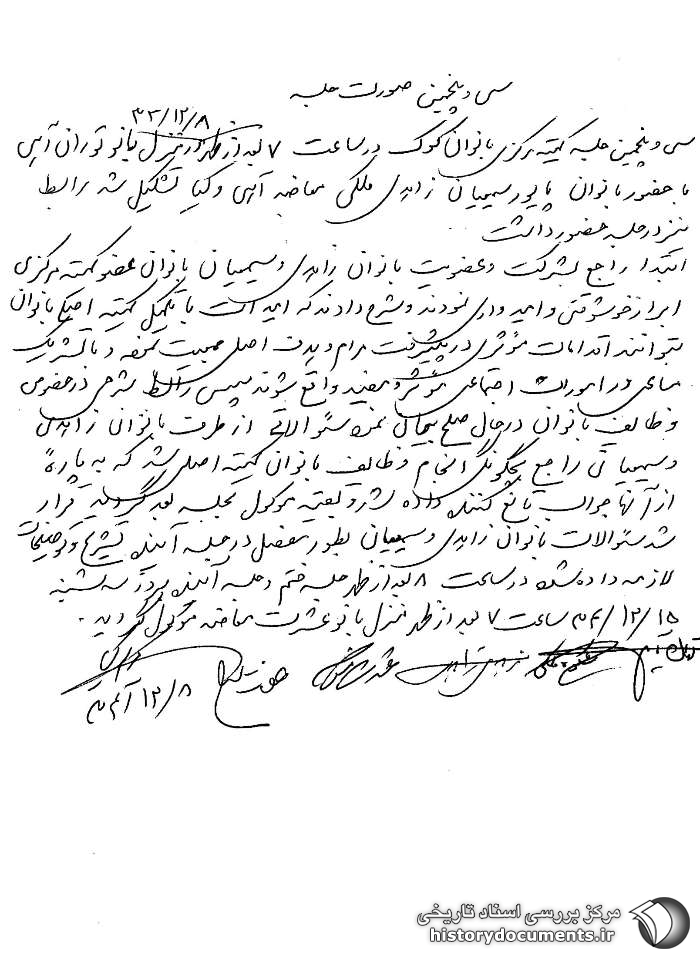 سی و پنجمین صورت جلسه
۳۴/۱۲/۸
سی و پنجمین جلسه کمیته مرکزی بانوان کوک در ساعت ۷ بعد از ظهر در منزل بانو توران آگهی
با حضور بانوان پاپور سیمیان زاهدی ملکی معاضد آگهی و کیا تشکیل شد رابط
نیز در جلسه حضور داشت
ابتدا راجع بشرکت و عضویت بانوان زاهدی و سیمیان بانوان عضو کمیته مرکزی
ابراز خوشوقتی و امیدواری نمودند و شرح دادند که امید است با تکمیل کمیته اصلی بانوان
بتوانند اقدامات مؤثری در پیشرفت مرام و هدف اصلی جمعیت نموده و با تشریک
مساعی در امورات اجتماعی مؤثر و مفید واقع شوند سپس رابط شرحی در خصوص
وظائف بانوان در حال صلح بیان نمود سئوالاتی از طرف بانوان زاهدی
و سیمیان راجع بچگونگی انجام وظائف بانوان کمیته اصلی شد که به پاره‌ای
از آنها جواب قانع کننده داده شد و بقیه موکول بجلسه بعد گردید قرار
شد سئوالات بانوان زاهدی و سیمیان بطور مفصل در جلسه آینده تشریح و توضیحات
لازمه داده شود در ساعت ۸ بعد از ظهر جلسه ختم و جلسه آینده بروز سه شنبه
۳۴/۱۲/۱۵ ساعت ۷ بعد از ظهر منزل بانو عشرت معاضد موکول گردید.
۳۴/۱۲/۸
مرکز بررسی اسناد تاریخی
historydocuments.ir